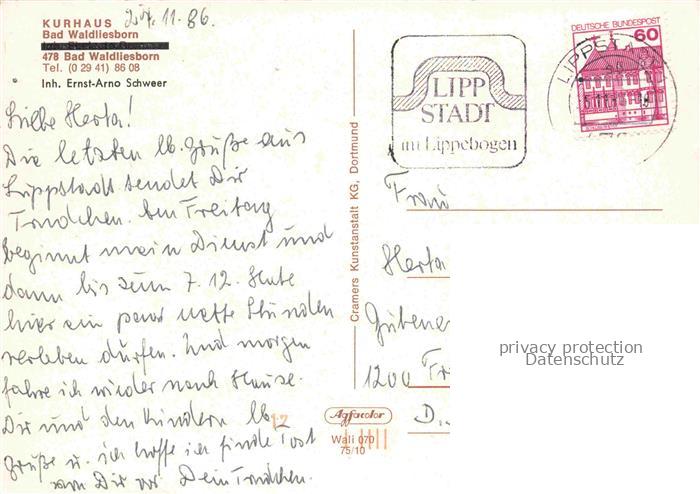 KURHAUS
Bad Waldliesborn
478 Bad Waldliesborn
Tel. (0 29 41) 86 08
Inh. Ernst-Arno Schweer
24.11.86.
Liebe Herta!
Die letzten lb. Grüße aus
Lippstadt sendet Dir
Trudchen. Am Freitag
beginnt mein Dienst und
dann bis zum 7.12. Hute
hier ein paar nette Stunden
verleben dürfen. Und morgen
fahre ich wieder nach Hause.
Dir und den Kindern lb.
Grüße u. ich hoffe ich finde Post
von Dir vor. Dein Trudchen.
Cramers Kunstanstalt KG, Dortmund
LIPP
STADT
im Lippebogen
DEUTSCHE BUNDESPOST
60
LIPPSTADT
Frau
Herta
1200 Fr
D.
privacy protection
Datenschutz
Agfacolor
Wali 070
75/10
12